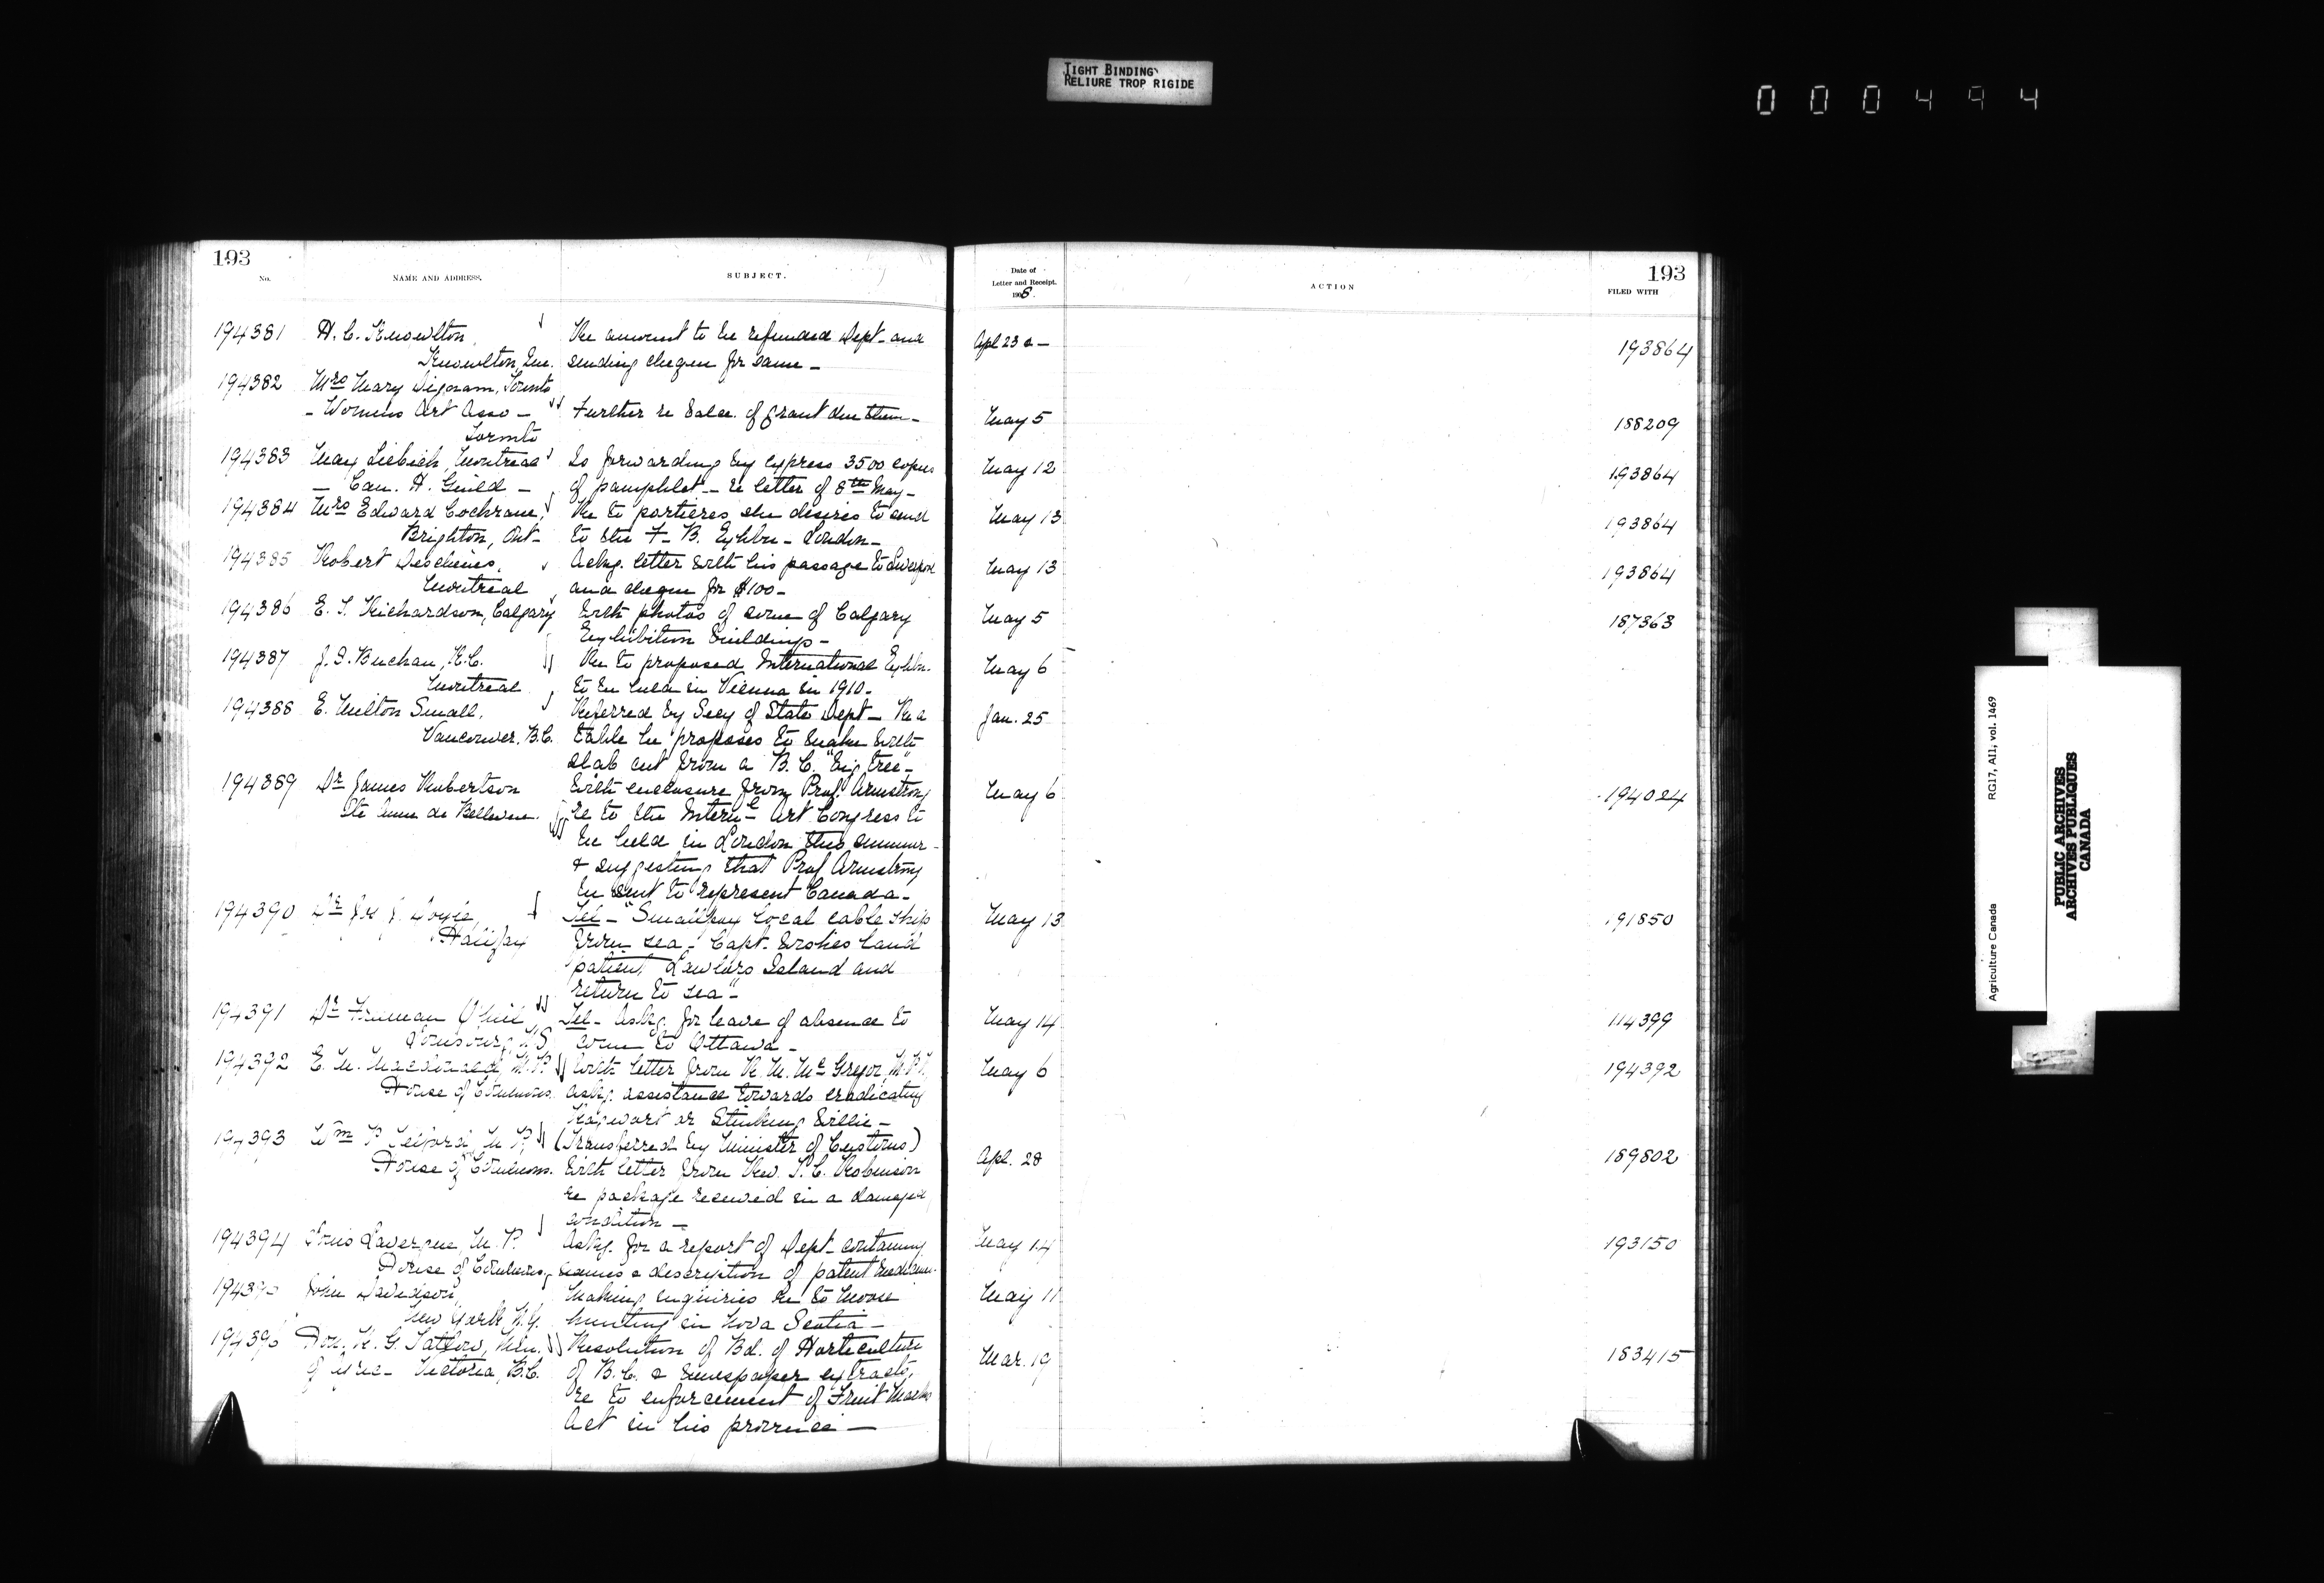 TIGHT BINDING
RELIURE TROP RIGIDE
000494
193
No.
NAME AND ADDRESS.
SUBJECT.
Date of
Letter and Receipt.
1908
ACTION
193
FILED WITH
194381 H. C. Knowlton, Re amount to be refunded Dept - and Apl 23 193864
Knowlton, Que. sending cheque for same -
194382 Mrs Mary Dignam, Toronto
- Womens Art Asso - Further re balce. of grant due them - May 5 188209
Toronto
194383 May Liebich, Montreal Is forwarding by express 3500 copies May 12 193864
- Can. H. Guild - of pamphlet - re letter of 8th May -
194384 Mrs Edward Cochrane, Re to portieres she desires to send May 13 193864
Brighton, Ont - to the F - B. Exhbn - London -
194385 Robert Deschenes, Ackg. letter with his passage to Liverpool May 13 193864
Montreal and cheque for $100 -
194386 E. L. Richardson, Calgary With photos of some of Calgary May 5 187363
Exhibition buildings -
194387 J. S. Buchan, K.C. Re to proposed International Exhbn. May 6
Montreal to be held in Vienna in 1910 -
194388 E. Milton Small, Referred by Secy of State Dept - Re a Jan. 25
Vancouver, B.C. table he proposes to make with
slab cut from a B.C. "big tree" -
194389 Dr James Robertson With enclosure from Prof. Armstrong May 6 194024
Ste Anne de Bellevue. re to the Intern - Art Congress to
be held in London this summer -
& suggesting that Prof Armstrong
be sent to represent Canada -
194390 Dr J. Doyle, Tel - "Smallpox local cable ship May 13 191850
Halifax from sea - Capt. wishes land
patient Lawlors Island and
return to sea" -
194391 Dr Freeman O'Neil Tel - Askg. for leave of absence to May 14 114399
Louisburg N.S. come to Ottawa -
194392 E. M. Macdonald, M.P. With letter from R. M. McGregor, M.P.P. May 6 194392
House of Commons. askg. assistance towards eradicating
Ragwort or Stinking Willie -
194393 Wm P. Telford M.P. (Transferred by Minister of Customs) Apl. 28 189802
House of Commons. With letter from Rev. Robinson
re package received in a damaged
condition -
194394 Louis Lavergne, M.P. Askg. for a report of Dept - containing May 14 193150
House of Commons, names & description of patent medicines.
194395 John Davidson, Making enquiries re to Moose May 11
New York N.Y. hunting in Nova Scotia -
194396 Hon. R. G. Tatlow, Min. Resolution of Bd. of Horticulture Mar. 19 183415
of Agric - Victoria, B.C. of B.C. & newspaper extracts,
re to enforcement of Fruit Marks
Act in his province -
Agriculture Canada RG17, AII, vol. 1469
PUBLIC ARCHIVES
ARCHIVES PUBLIQUES
CANADA